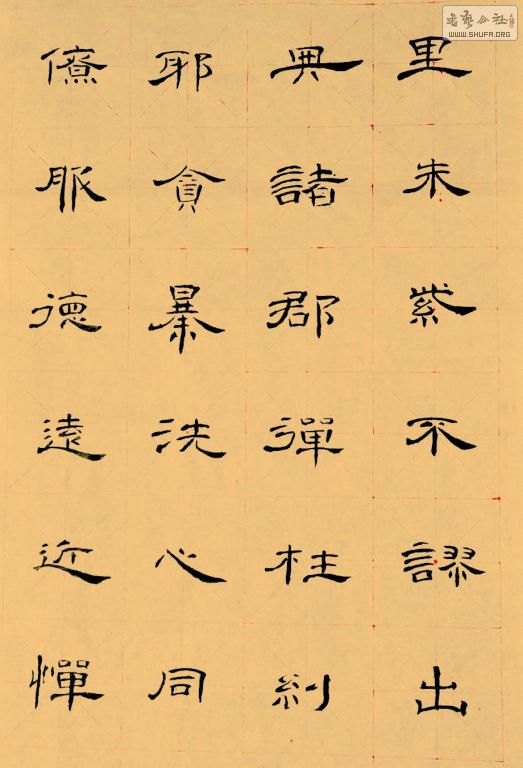 里朱紫不謬出
典諸郡彈枉糾
邪貪暴洗心同
僚服德遠近憚
书艺公社
WWW.SHUFA.ORG